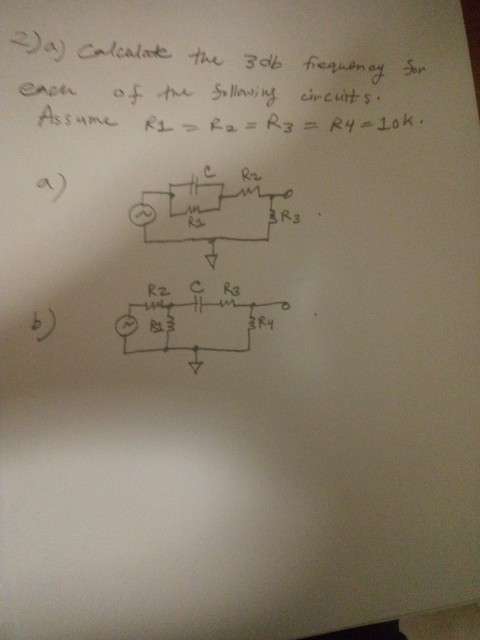 2) a) Calculate the 3db frequency for
each of the following circuits.
Assume R1 = R2 = R3 = R4 = 10k.
a)
C
R2
R1
R3
b)
R2
C
R3
R1
R4